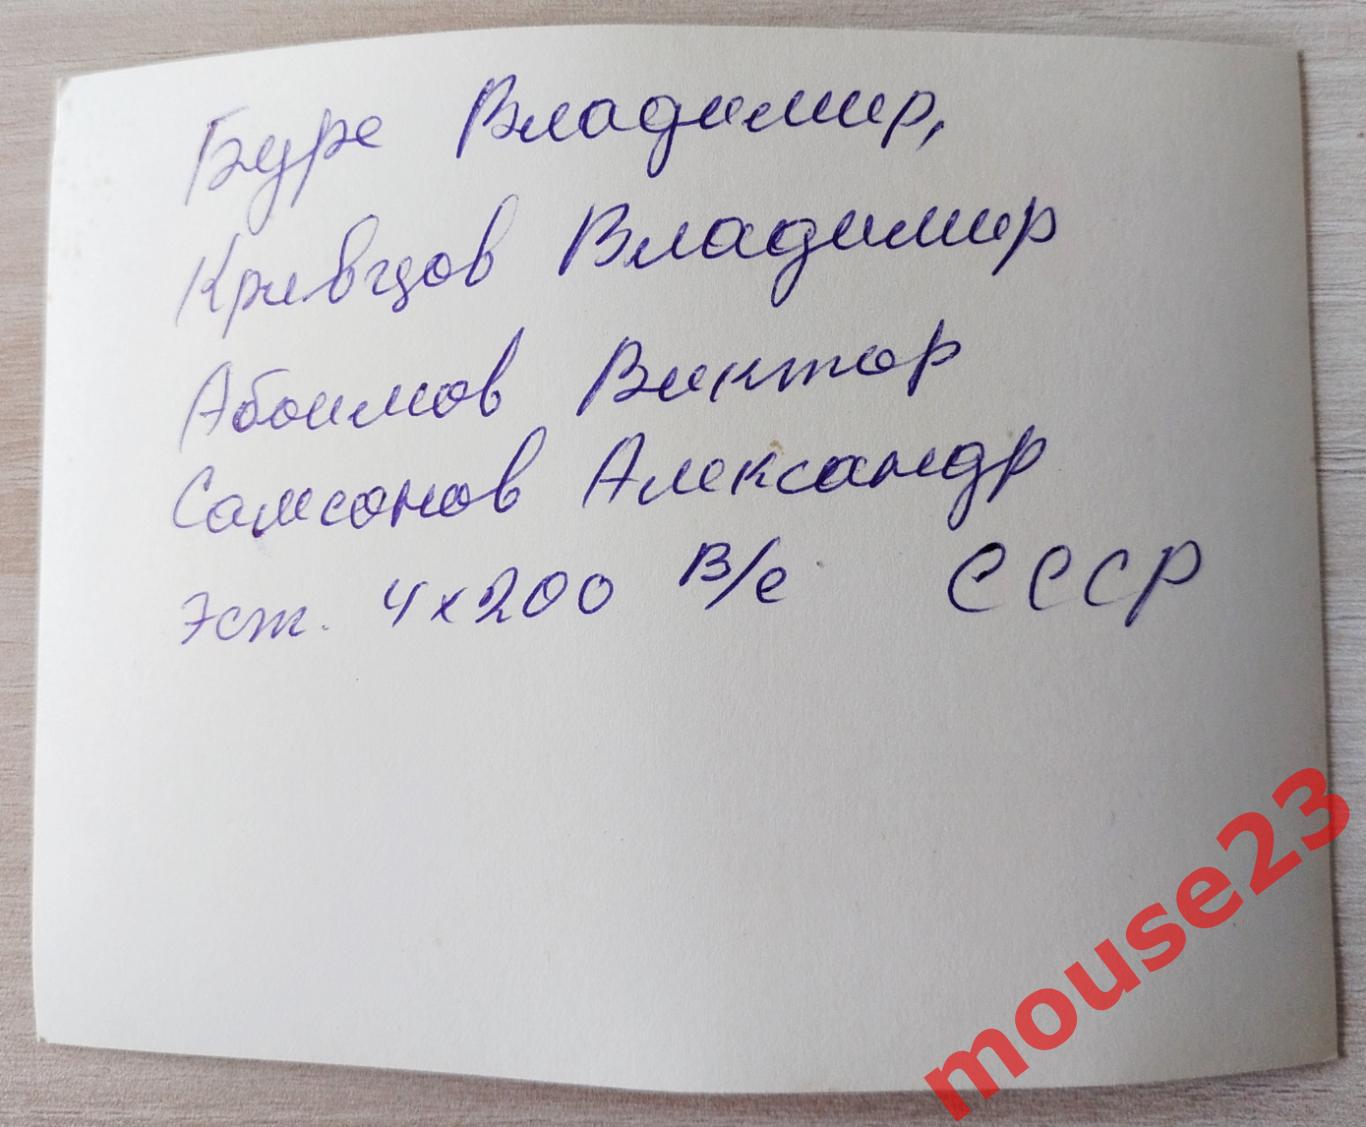 Буре Владимир,
Кривцов Владимир
Абоимов Виктор
Самсонов Александр
Эст. 4х200 в/с СССР
mouse23